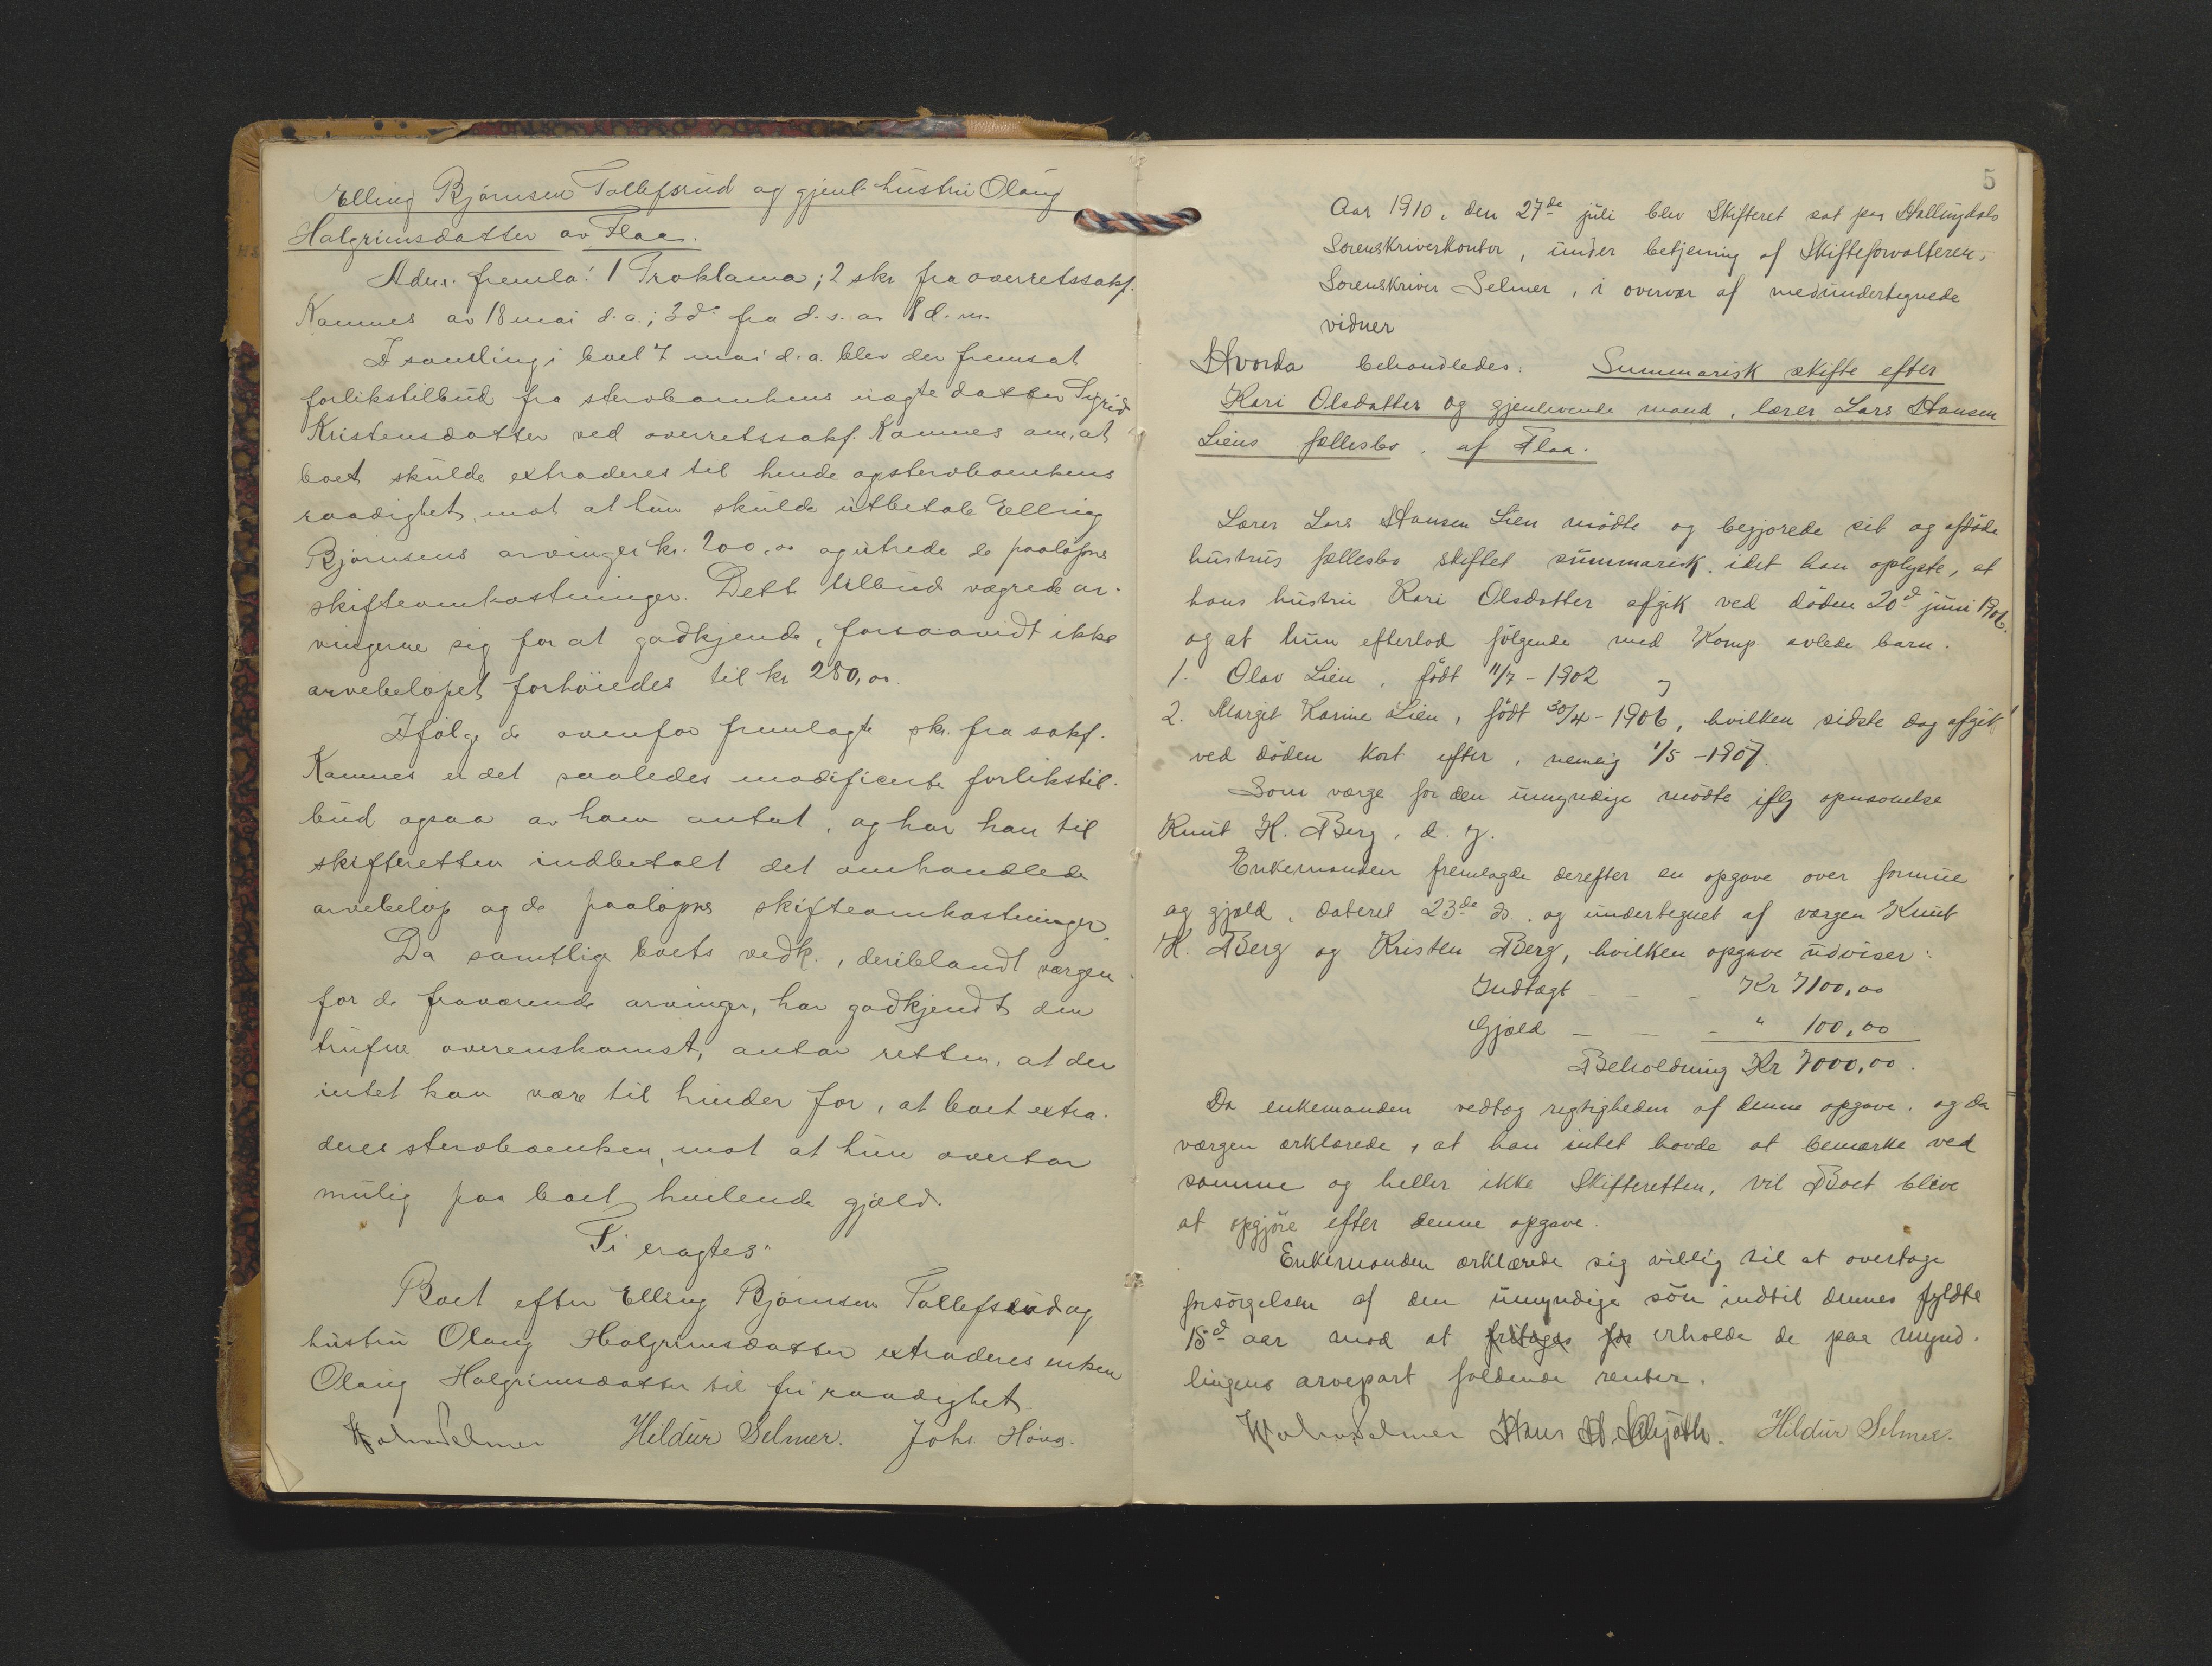 Elling Bjørnsen Tollefsrud og gjenl. hustru Olaug
Halgrimsdatter av Flaa.
Adm. fremla: 1 Proklama; 2 skr. fra overretssakf.
Kamnes av 18 mai d. a.; 3 do fra d. s. av 8 d. m.
I samling i boet 7 mai d. a. blev der fremsat
forlikstilbud fra stervboenkens uegte datter Sigrid
Kristensdatter ved overretssakf. Kamnes om, at
boet skulde extraderes til hende og stervboenkens
raadighet, mot at hun skulde utbetale Elling
Bjørnsens arvinger kr. 200,00 og utrede de paaløpne
skifteomkostninger. Dette tilbud vægrede ar-
vingerne sig for at godkjende, forsaavidt ikke
arvebeløpet forhøiedes til kr 280,00.
Ifølge de ovenfor fremlagte skr. fra sakf.
Kamnes er det saaledes modificerte forlikstil-
bud ogsaa av ham antat, og har han til
skifteretten indbetalt det omhandlede
arvebeløp og de paaløpne skifteomkostninger.
Da samtlige boets vedk., deriblandt vergen
for de fraværende arvinger, har godkjendt den
trufne overenskomst, antar retten, at der
intet kan være til hinder for, at boet extra-
deres stervboenken, mot at hun overtar
mulig paa boet hvilende gjæld.
Ti eragtes:
Boet efter Elling Bjørnsen Tollefsrud og
hustru Olaug Halgrimsdatter extraderes enken
Olaug Halgrimsdatter til fri raadighet.
Selmer Hildur Selmer. Johs. Houg.
5
Aar 1910, den 27de juli blev Skifteret sat paa Hallingdals
Sorenskriverkontor, under betjening af Skifteforvalteren,
Sorenskriver Selmer, i overvær af medundertegnede
vidner
Hvorda behandledes: Summarisk skifte efter
Kari Olsdatter og gjenlevende mand, lærer Lars Hansen
Liens fællesbo, af Flaa.
Lærer Lars Hansen Lien mødte og begjærede sit og afdøde
hustrus fællesbo skiftet summarisk, idet han oplyste, at
hans hustru Kari Olsdatter afgik ved døden 20d juni 1906.
og at hun efterlod følgende med Komp. avlede barn.
1. Olav Lien, født 11/7 - 1902 og
2. Margit Karine Lien, født 30/4 - 1906, hvilken sidste dog afgik
ved døden kort efter, nemlig 1/5 - 1907.
Som værge for den umyndige mødte iflg opnævnelse
Knut K. Berg, d. y.
Enkemanden fremlagde derefter en opgave over formue
og gjæld, dateret 23de ds. og undertegnet af værgen Knut
K. Berg og Kristen Berg, hvilken opgave udviser:
Indtægt - - - Kr 7100,00
Gjæld - - - " 100,00
Beholdning Kr 7000,00.
Da enkemanden vedtog rigtigheden af denne opgave, og da
værgen erklærede, at han intet havde at bemærke ved
samme og heller ikke Skifteretten, vil Boet blive
at opgjøre efter denne opgave.
Enkemanden erklærede sig villig til at overtage
forsørgelsen af den umyndige søn indtil dennes fyldte
15d aar mod at fritages for erholde de paa mynd-
lingens arvepart faldende renter.
Selmer Hans H. Hildur Selmer.